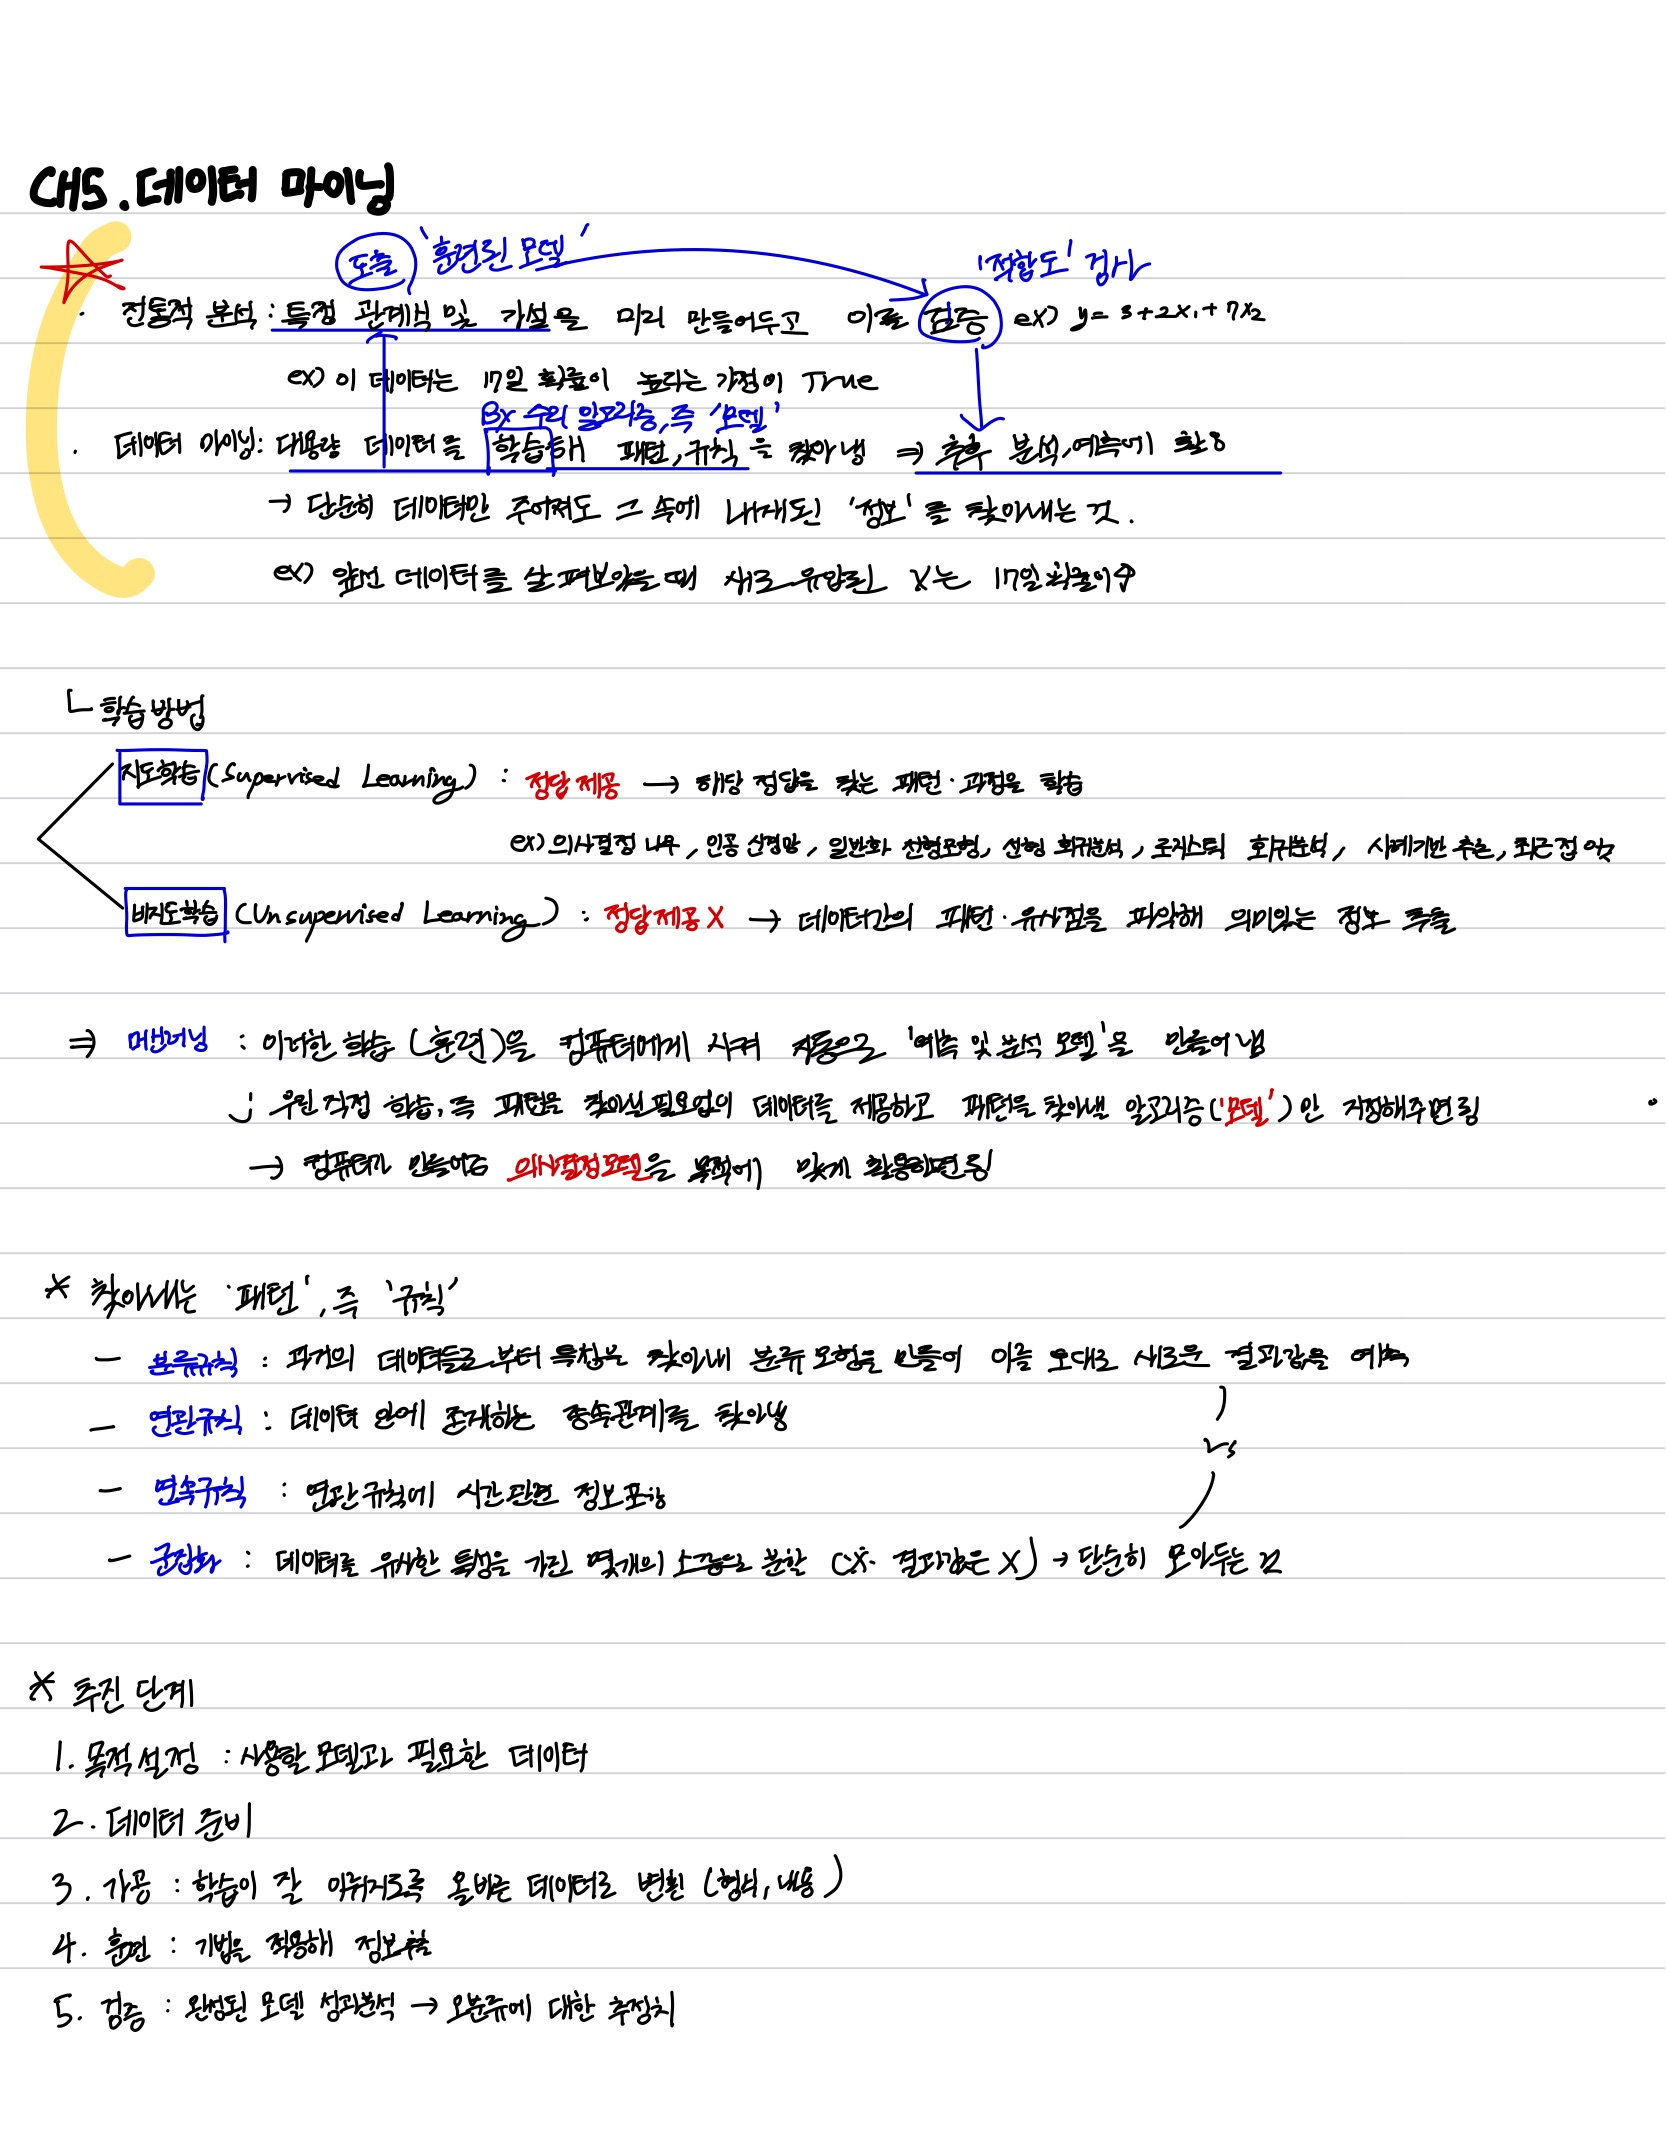 CH5. 데이터 마이닝
도출 '훈련된 모델' '적합도' 검사
· 전통적 분석 : 특정 관계식 및 가설을 미리 만들어두고 이를 검증 ex) y = 3+2x₁+7x₂
ex) 이 데이터는 17일 확률이 높다는 가정이 True
By 수의 알고리즘, 즉 '모델'
· 데이터 마이닝 : 대용량 데이터를 학습해 패턴, 규칙을 찾아냄 ⇒ 추후 분석, 예측에 활용
→ 단순히 데이터만 주어져도 그 속에 내재된 '정보'를 찾아내는 것.
ex) 앞선 데이터를 살펴보았을 때 새로 유입된 X는 17일 확률이 ↑
└ 학습방법
지도학습 (Supervised Learning) : 정답 제공 → 해당 정답을 찾는 패턴·과정을 학습
ex) 의사결정 나무, 인공 신경망, 일반화 선형모형, 선형 회귀분석, 로지스틱 회귀분석, 사례기반 추론, 최근접 이웃
비지도학습 (Unsupervised Learning) : 정답제공 X → 데이터간의 패턴·유사점을 파악해 의미있는 정보 추출
⇒ 머신러닝 : 이러한 학습(훈련)을 컴퓨터에게 시켜 자동으로 '예측 및 분석 모델'을 만들어 냄
우린 직접 학습, 즉 패턴을 찾아실 필요없이 데이터를 제공하고 패턴을 찾아낼 알고리즘('모델')만 지정해주면 됨
→ 컴퓨터가 만들어준 의사결정모델을 목적에 맞게 활용하면 됨!
* 찾아내는 '패턴', 즉 '규칙'
- 분류규칙 : 과거의 데이터들로부터 특징을 찾아내 분류 모형을 만들어 이를 토대로 새로운 결과값을 예측
- 연관규칙 : 데이터 안에 존재하는 종속관계를 찾아냄
vs
- 연속규칙 : 연관 규칙에 시간 관련 정보 포함
- 군집화 : 데이터를 유사한 특성을 가진 몇개의 소그룹으로 분할 (※ 결과값은 X) → 단순히 모아두는 것
* 추진 단계
1. 목적 설정 : 사용할 모델과 필요한 데이터
2. 데이터 준비
3. 가공 : 학습이 잘 이뤄지도록 올바른 데이터로 변환 (형식, 내용)
4. 훈련 : 기법을 적용해 정보추출
5. 검증 : 완성된 모델 성과분석 → 오분류에 대한 추정치